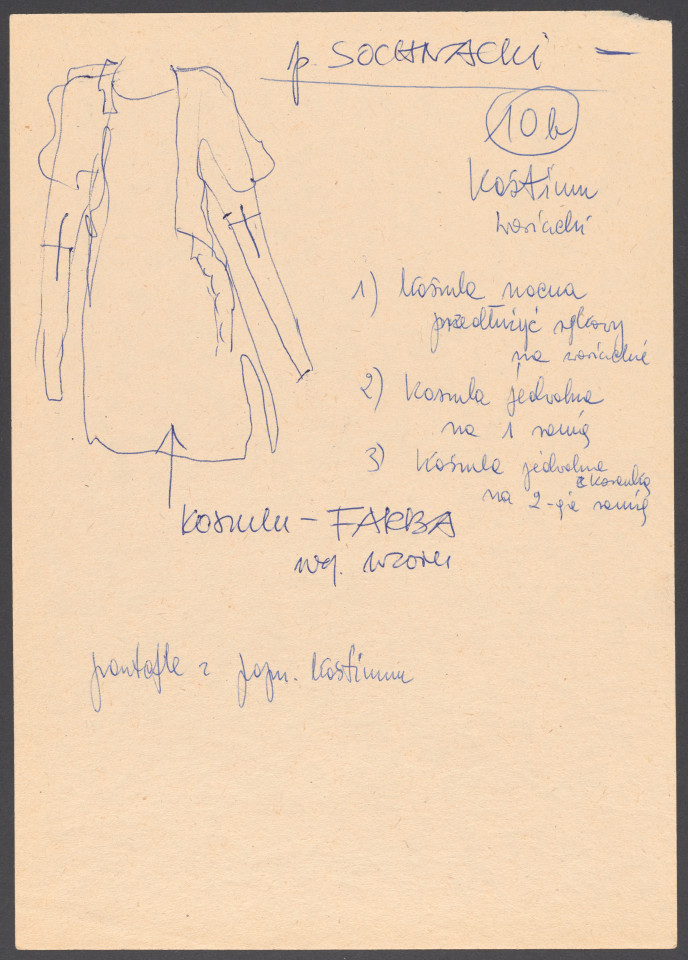 p. SOCHNACKI —
10b
Kostium
1) Koszula nocna
przedłużyć rękawy
na
2) Koszula jedwabna
na 1 ramię
3) Koszula jedwabna
z koronką
na 2-gie ramię
Koszula – FARBA
wg. wzoru
pantofle z pop. kostiumu